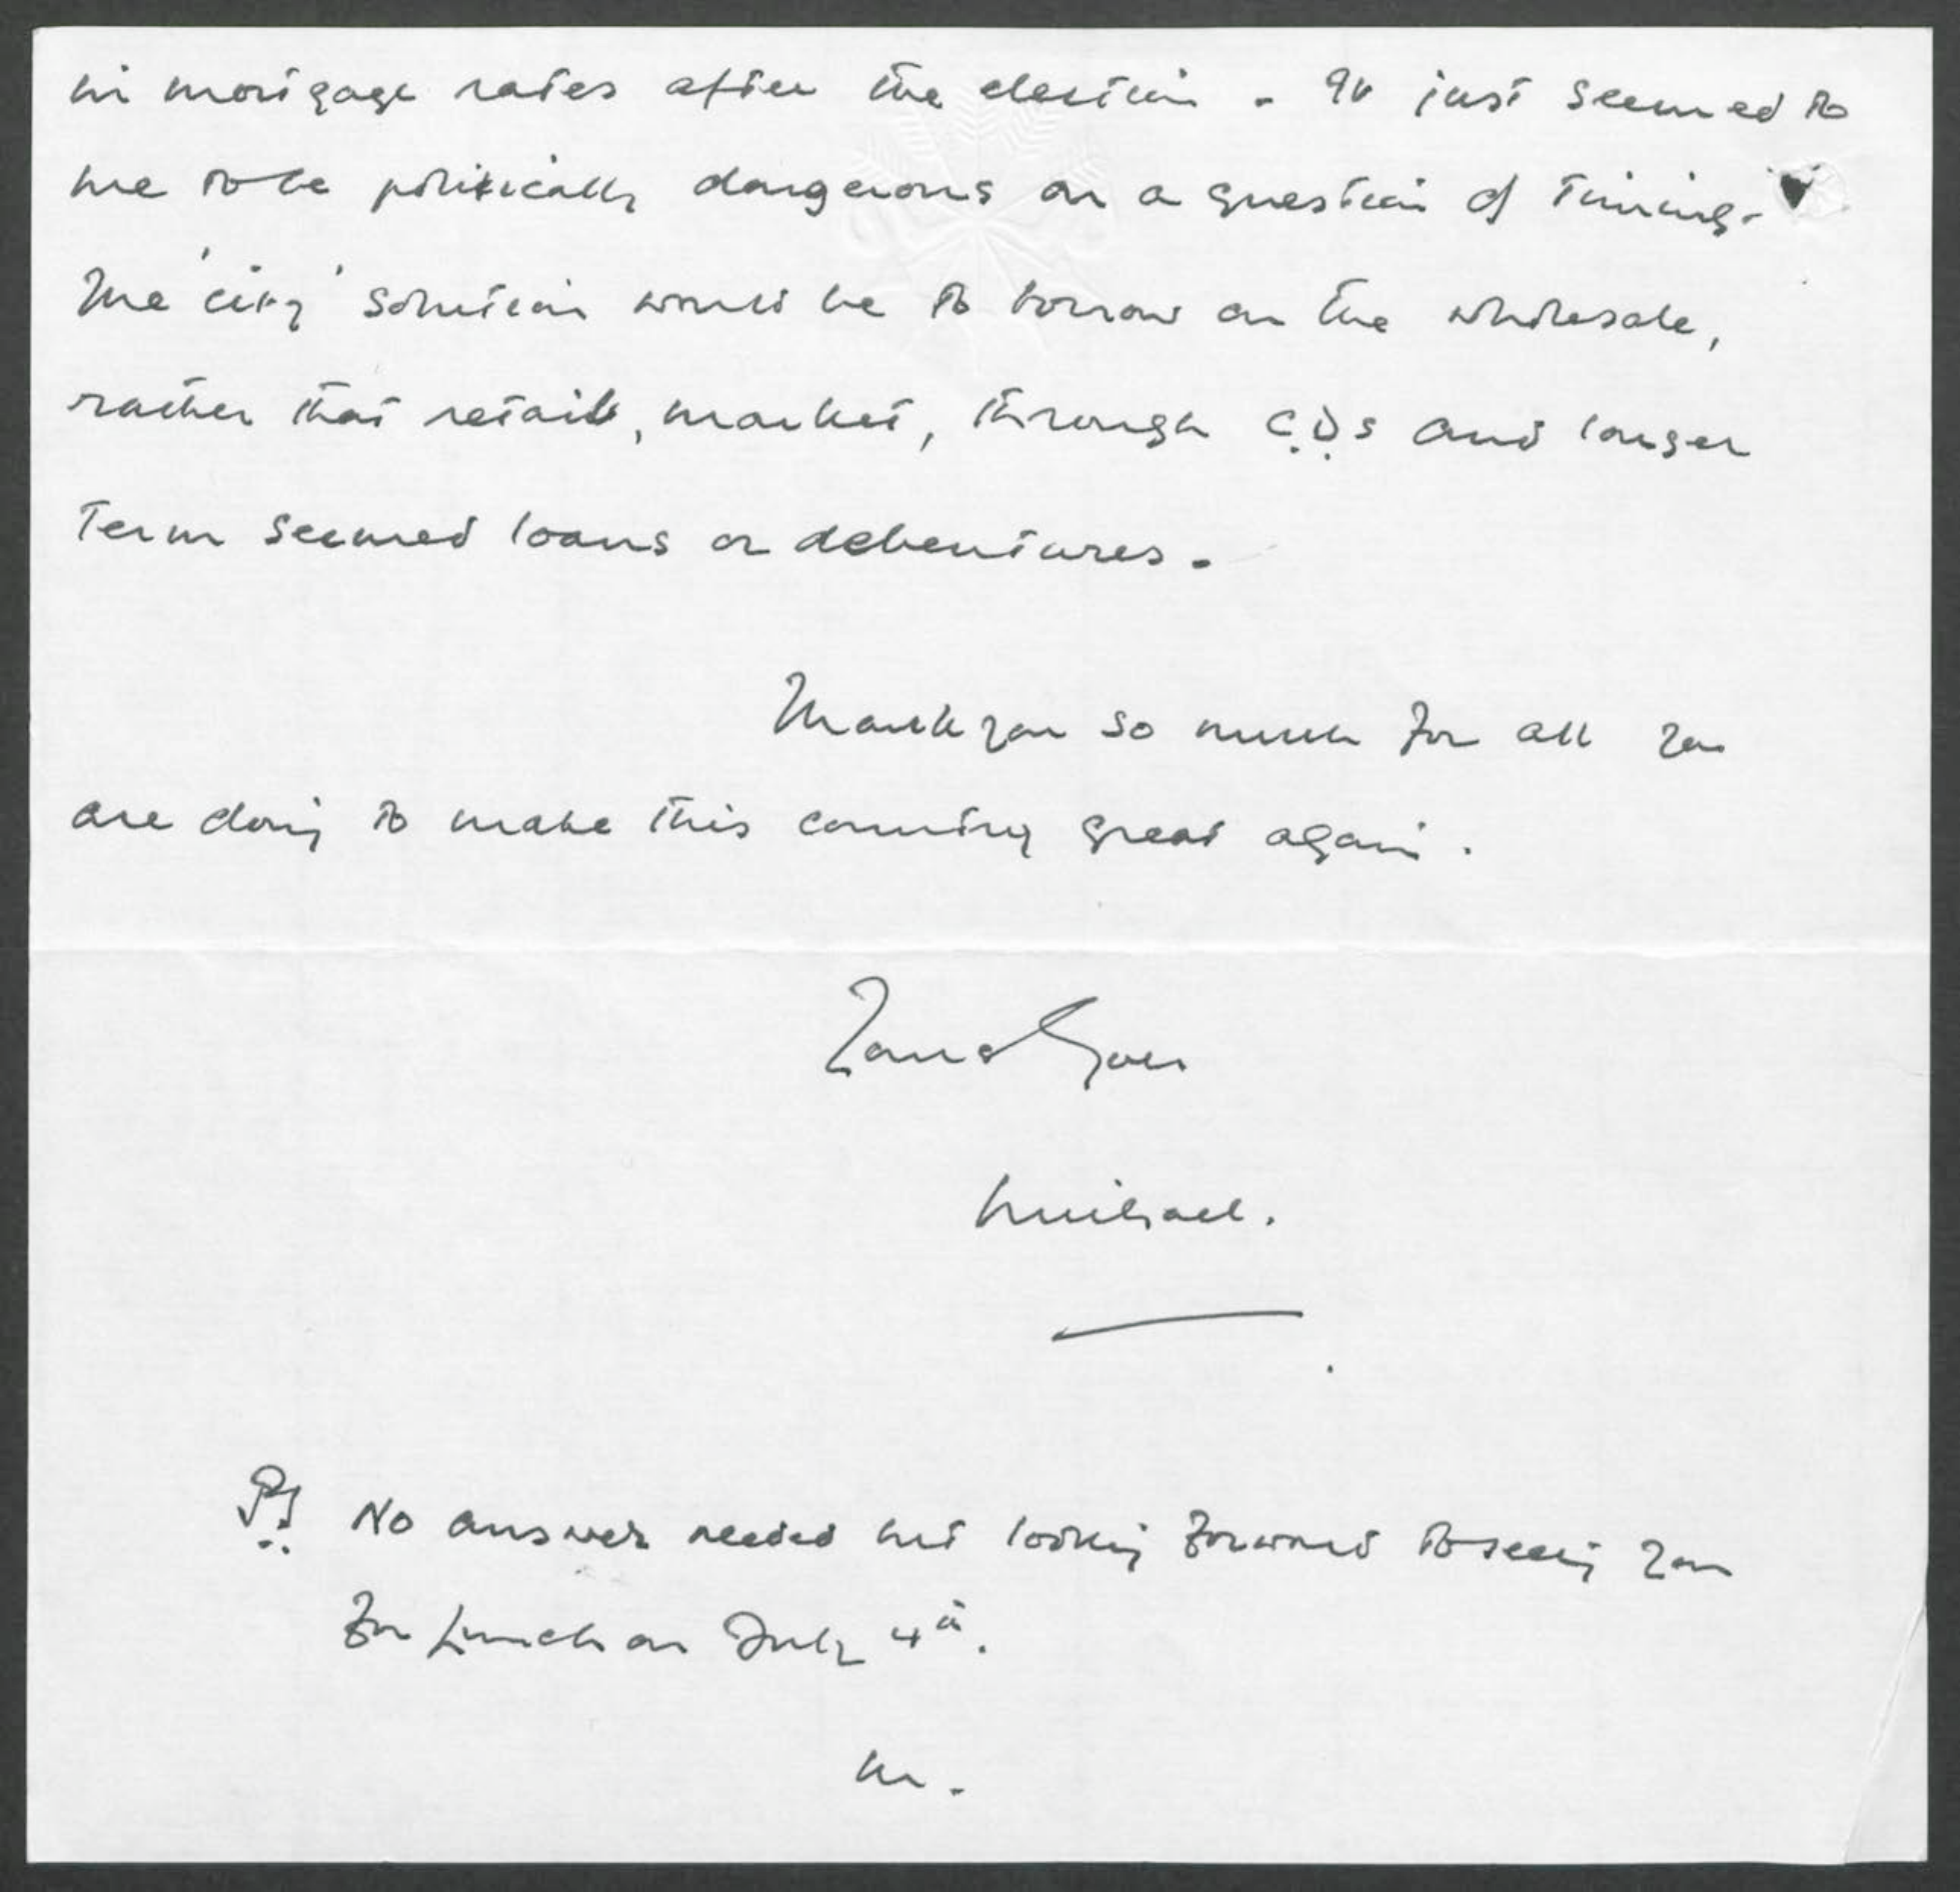 in mortgage rates after the election. It just seemed to
me to be politically dangerous on a question of timing.
The 'city' solution would be to borrow on the wholesale,
rather that retail, market, through C.D.s and longer
term secured loans or debentures.
Thank you so much for all you
are doing to make this country great again.
Yours ever
Michael.
P.S. No answer needed but looking forward to seeing you
for lunch on July 4th.
M.